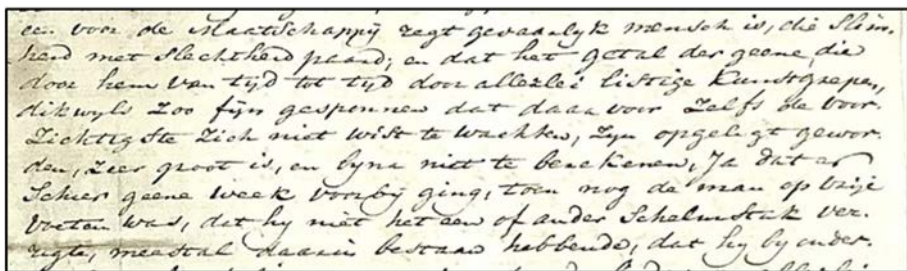 een voor de Maatschappij regt gevaarlyk mensch is, die Slim-
heid met slechtheid paard; en dat het getal der geene, die
door hem van tijd tot tijd door allerlei listige Kunstgrepen,
dikwyls zoo fijn gesponnen dat daar voor zelfs de voor-
zichtigste zich niet wist te wachten, zyn opgeligt gewor-
den, zeer groot is, en byna niet te berekenen, Ja dat er
Schier geene week voorbij ging, toen nog de man op vrije
voeten was, dat hy niet het een of ander Schelmstuk ver-
rigte, meestal daarin bestaan hebbende, dat hy by onder-